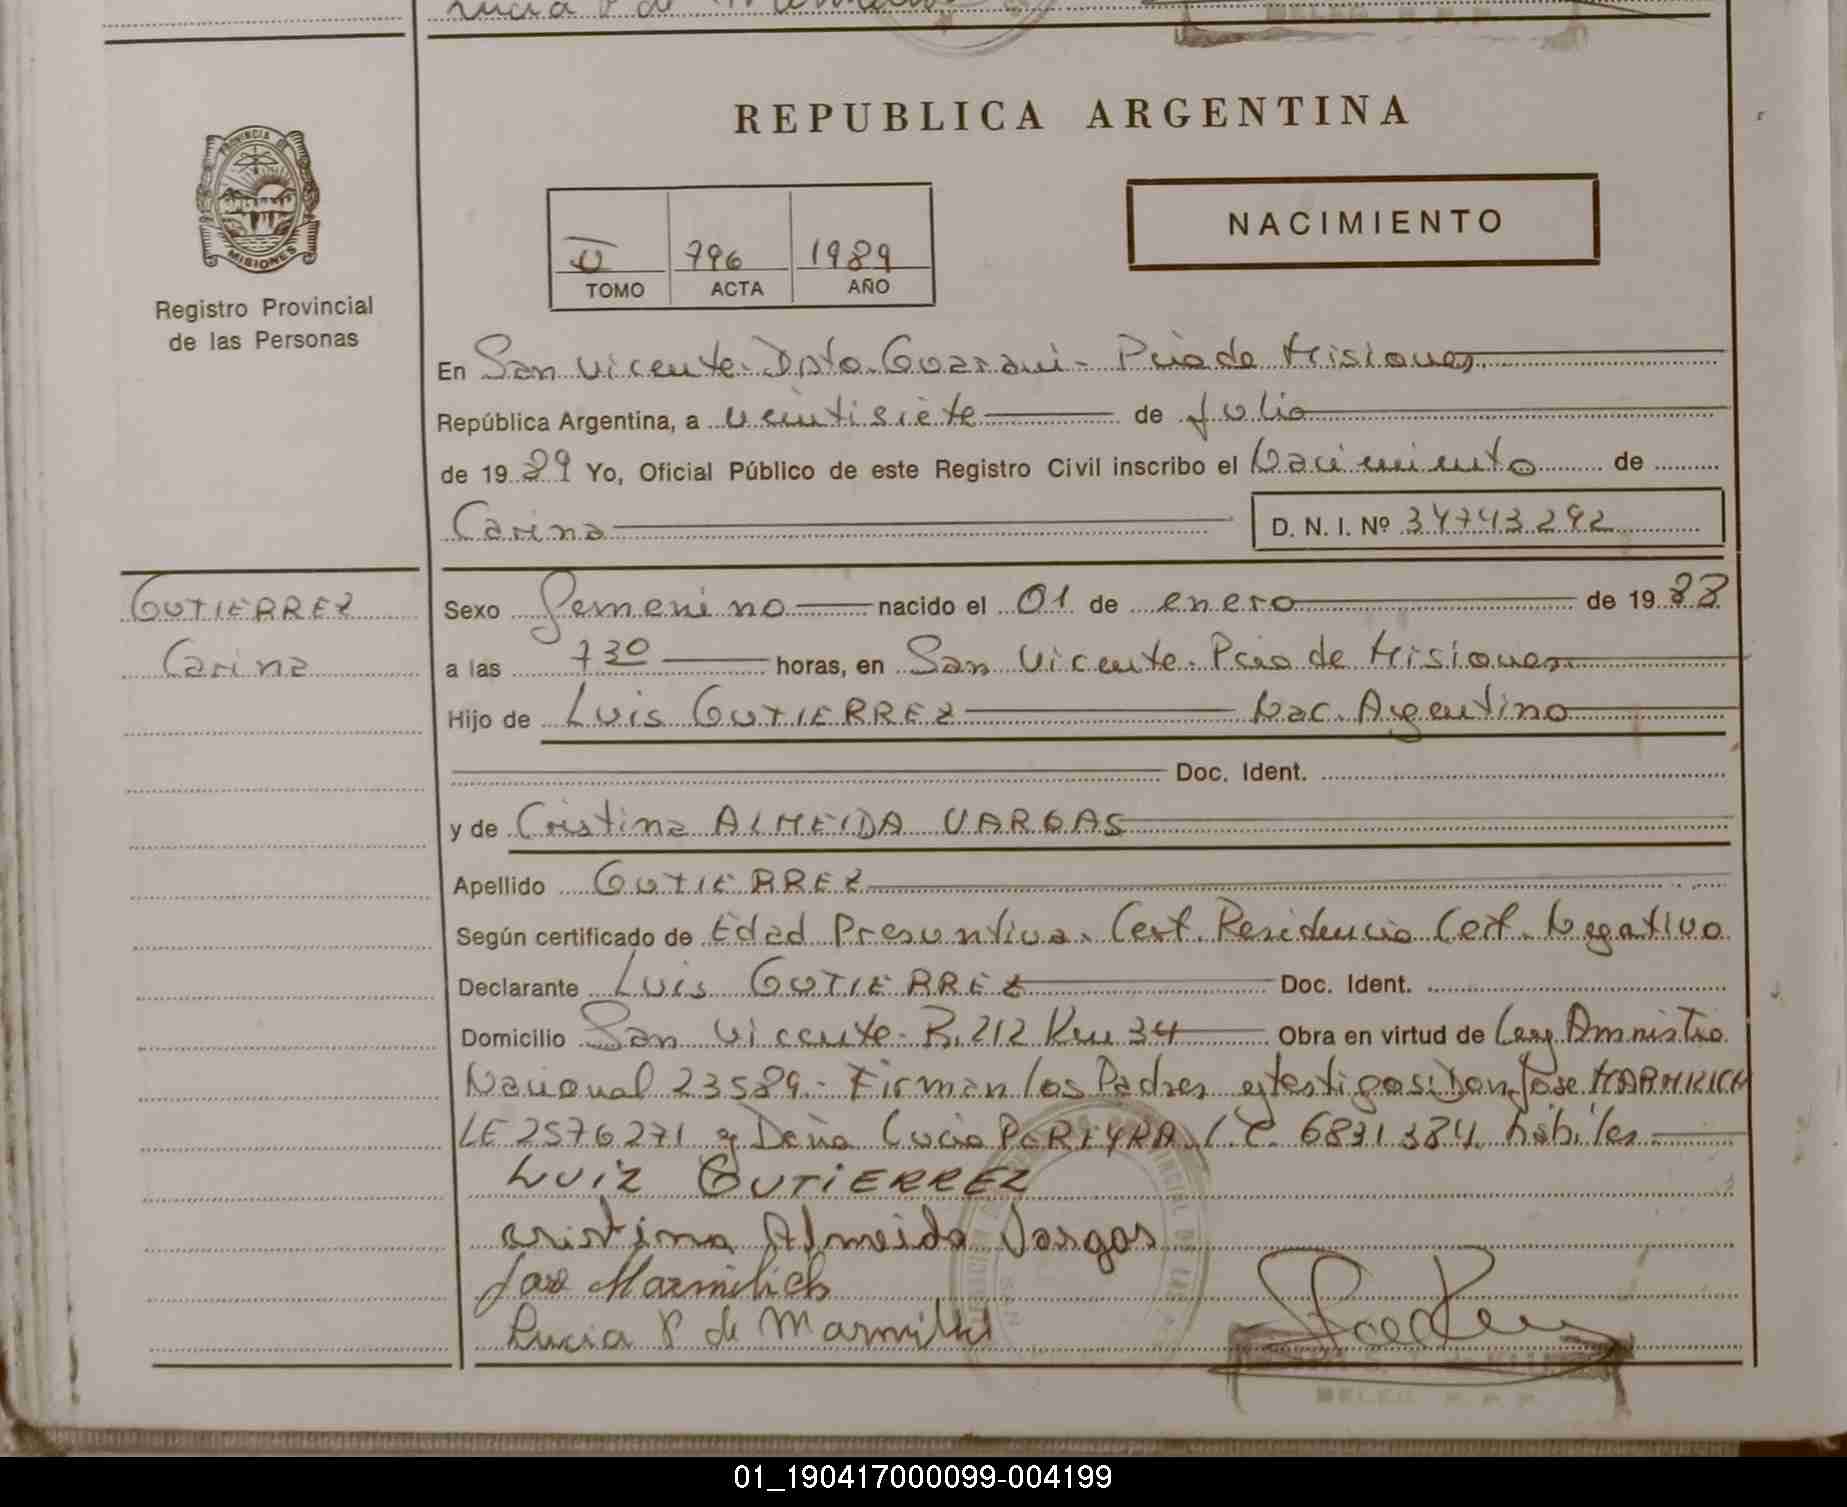 REPUBLICA ARGENTINA
PROVINCIA DE
MISIONES
Registro Provincial
de las Personas
NACIMIENTO
II 796 1989
TOMO ACTA AÑO
En San Vicente. Dpto. Guarani - Pcia de Misiones
República Argentina, a veintisiete de Julio
de 1989 Yo, Oficial Público de este Registro Civil inscribo el Nacimiento de
Carina D. N. I. Nº 34743292
GUTIERREZ
Carina
Sexo Femenino nacido el 01 de enero de 1988
a las 7 30 horas, en San Vicente. Pcia de Misiones
Hijo de Luis GUTIERREZ Nac. Argentino
Doc. Ident.
y de Cristina ALMEIDA VARGAS
Apellido GUTIERREZ
Según certificado de Edad Presuntiva. Cert. Residencia Cert. Negativo
Declarante Luis GUTIERREZ Doc. Ident.
Domicilio San Vicente. R. 212 Km 34 Obra en virtud de Ley Amnistia
Nacional 23589.- Firman los Padres y testigos: Don Jose
LE 2576271 y Doña Lucia PEREYRA L C. 6831384 hábiles
LUIZ GUTIERREZ
cristina Almeida Vargas
Jose Marmilich
Lucia P de
01_190417000099-004199